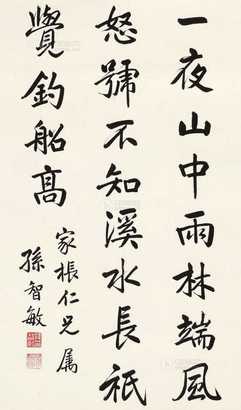 一夜山中雨林端風
怒號不知溪水長衹
覺釣船高
家棖仁兄属
孫智敏